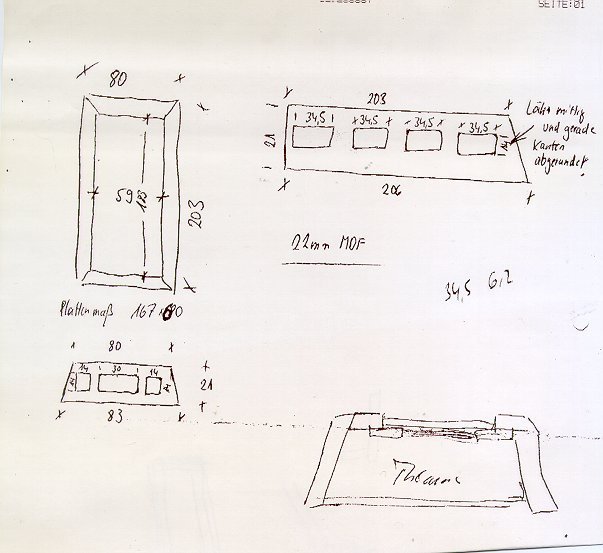 SEITE:01
80
203
59
203
34,5
34,5
34,5
34,5
21
Löcher mittig
und gerade
Kanten
abgerundet
206
22mm MDF
34,5 6,2
Plattenmaß 167
80
14
30
14
21
83